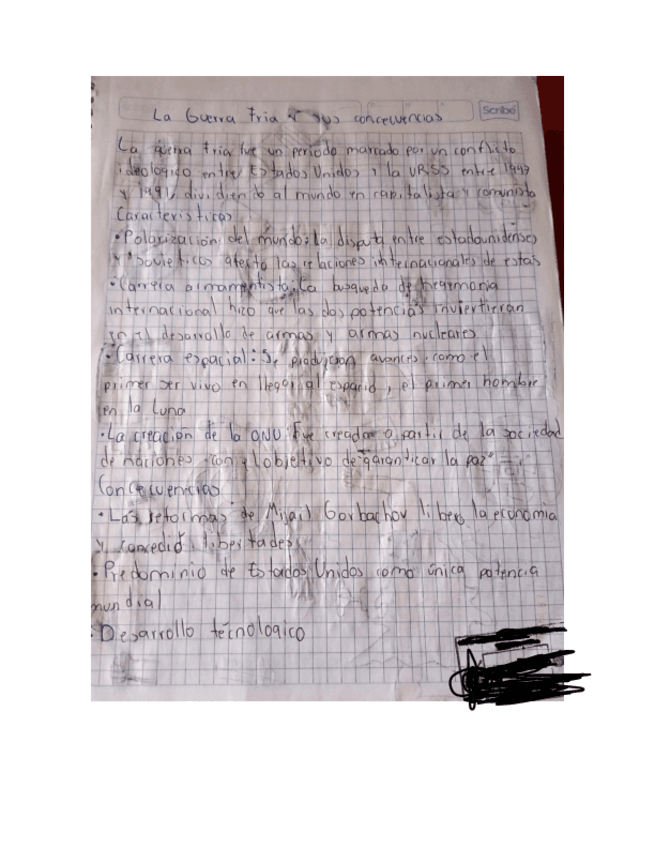 La Guerra Fria y sus concecuencias
Scribe
La guerra fria fue un periodo marcado por un conflicto
ideologico entre Estados Unidos y la URSS entre 1947
y 1991, dividiendo al mundo en capitalista y comunista
Caracteristicas
•Polarización del mundo: la disputa entre estadounidenses
y sovieticos afecto las relaciones internacionales de estas
•Carrera armamentista: La busqueda de hegemonia
internacional hizo que las dos potencias inviertieran
en el desarrollo de armas y armas nucleares
•Carrera espacial: Se produjeron avances como el
primer ser vivo en llegar al espacio, el primer hombre
en la Luna
•La creación de la ONU: Fue creada a partir de la sociedad
de naciones con el objetivo de garanticar la paz
Concecuencias
•Las reformas de Mijail Gorbachov libero la economia
y concedió libertades
•Predominio de Estados Unidos como única potencia
mundial
•Desarrollo técnologico